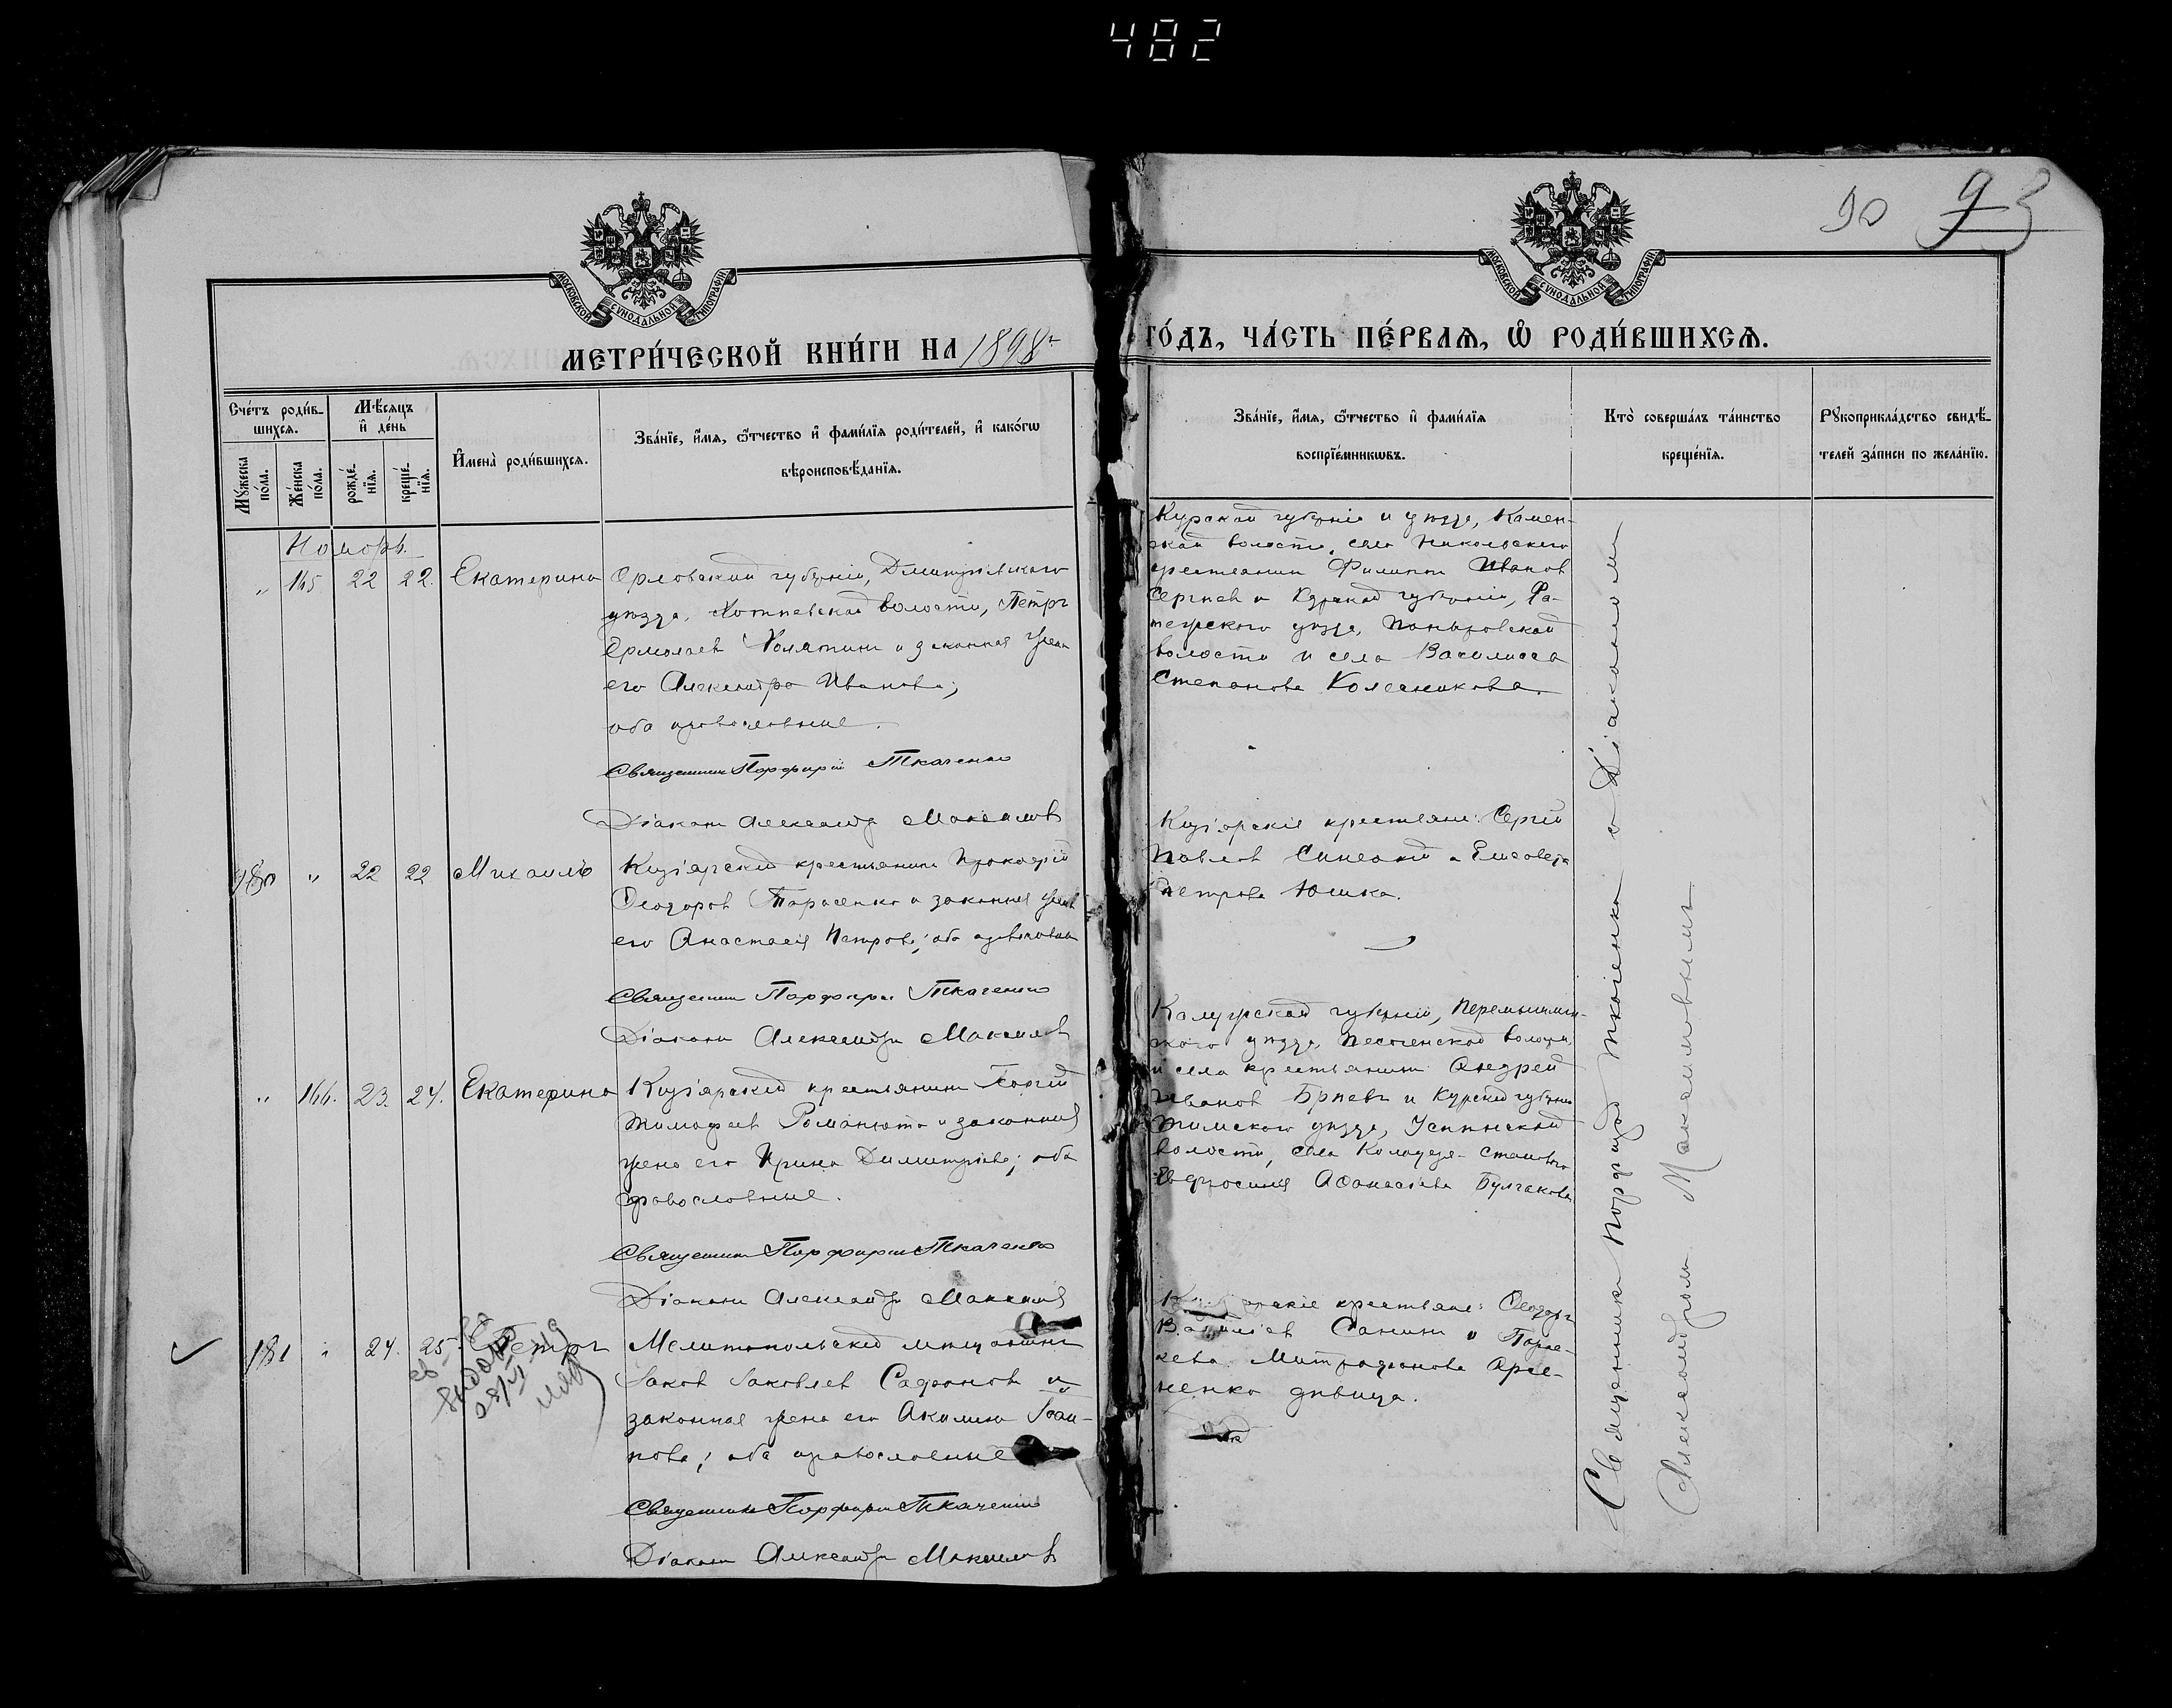 482
90 93
МОСКОВСКОЙ СѴНОДАЛЬНОЙ ТИПОГРАФІИ
МОСКОВСКОЙ СѴНОДАЛЬНОЙ ТИПОГРАФІИ
МЕТРИ́ЧЕСКОЙ КНИ́ГИ НА 1898 г.
ГО́ДЪ, ЧА́СТЬ ПЕ́РВАѦ, Ѡ҆ РОДИ́ВШИХСѦ.
Сче́тъ роди́в-
шихсѧ.
Мꙋ́жеска по́ла.
Же́нска по́ла.
Мѣ́сѧцъ
и҆ де́нь
рожде́-
нїѧ.
креще́-
нїѧ.
И҆мена̀ роди́вшихсѧ.
Зва́нїе, и҆́мѧ, ѻ҆́тчество и҆ фами́лїѧ роди́телей, и҆ како́гѡ
вѣроисповѣ́данїѧ.
Зва́нїе, и҆́мѧ, ѻ҆́тчество и҆ фами́лїѧ
воспрїе́мникѡвъ.
Кто̀ соверша́лъ та́инство
креще́нїѧ.
Рꙋкоприкла́дство свидѣ́-
телей за́писи по жела́нїю.
Ноябрь.
" 165 22 22. Екатерина
Орловской губерніи, Дмитріевского
уѣзда, Хотнѣвской волости, Петръ
Ермолаевъ Холятинъ и законная жена
его Александра Иванова;
оба православные.
Священникъ Порфирій Ткаченко
Діаконъ Александръ Максимовъ
Курской губерніи и уѣзда, Камен-
ской волости, села Никольского
крестьянинъ Филиппъ Ивановъ
Сергѣевъ и Курской губерніи, Фа-
тежского уѣзда, Поныровской
волости и села Василисса
Степанова Колесникова.
180 " 22 22 Михаилъ
Кизіярскій крестьянинъ Прокофій
Ѳеодоровъ Тарасенко и законная жена
его Анастасія Петрова; оба православны
Священникъ Порфирій Ткаченко
Діаконъ Александръ Максимовъ
Кизіярскіе крестьяне: Сергій
Павловъ и Елисавета
Петрова Юшка.
" 166. 23. 24. Екатерина
Кизіярскій крестьянинъ Георгій
Тимофеевъ Романюта и законная
жена его Ирина Димитріева; оба
православные.
Священникъ Порфирій Ткаченко
Діаконъ Александръ Максимовъ
Калужской губерніи, Перемышль-
ского уѣзда, Песоченской волости
и села крестьянинъ Андрей
Ивановъ и Курской губерніи
Тимского уѣзда, Успенской
волости, села Колодезя
Евфросинія Аѳанасіева Булгакова
181 " 24. 25. Петръ
Мелитопольскій мѣщанинъ
Іаковъ Іаковлевъ Сафоновъ и
законная жена его Акилина Іоан-
нова; оба православные
Священникъ Порфирій Ткаченко
Діаконъ Александръ Максимовъ
крестьяне: Ѳеодоръ
Василіевъ Санинъ и Парас-
кева Митрофанова Арсе-
ненко дѣвица.
Священникъ Порфирій Ткаченко съ Діакономъ
Александромъ Максимовымъ